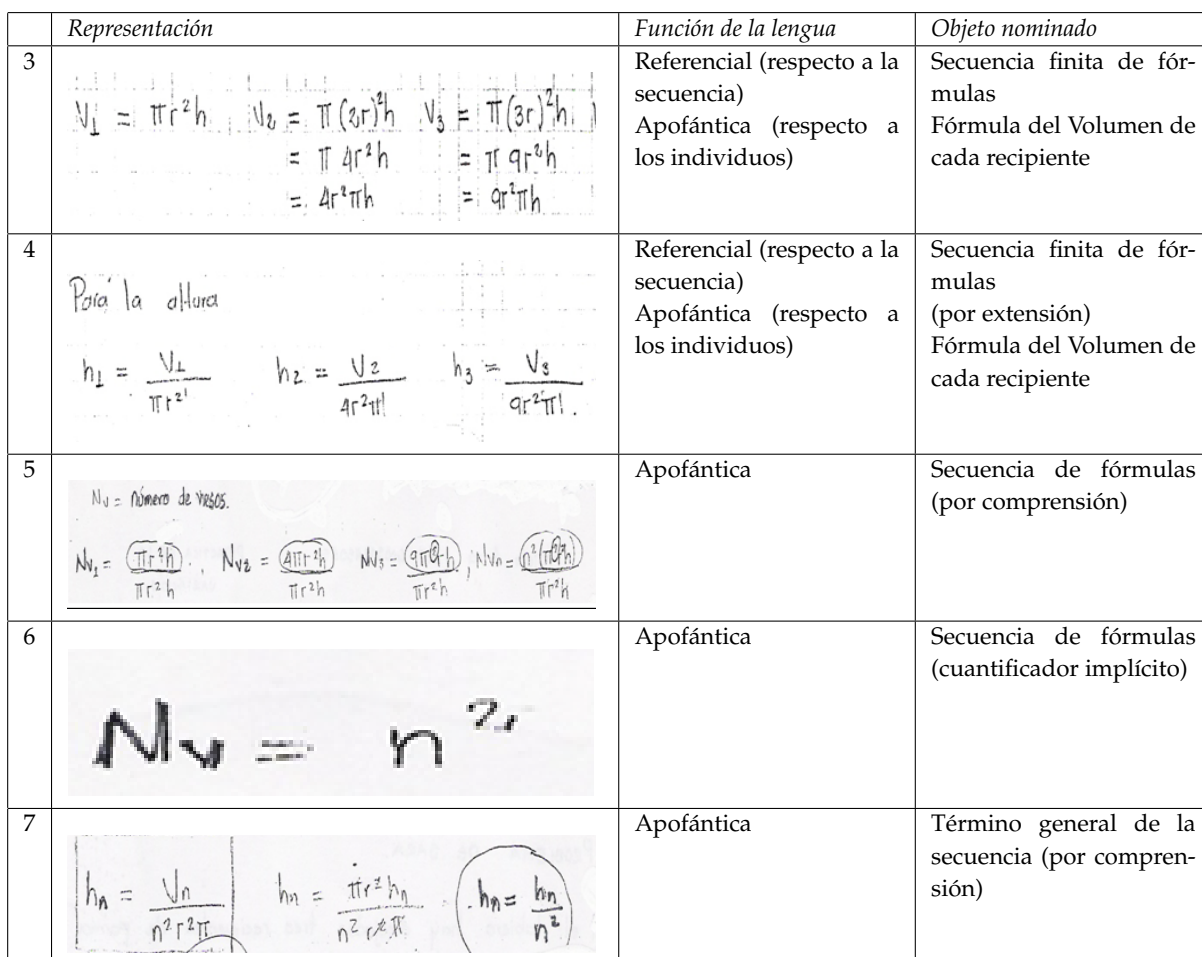 Representación Función de la lengua Objeto nominado
3
V₁ = πr²h V₂ = π(2r)²h V₃ = π(3r)²h
= π 4r²h = π 9r²h
= 4r²πh = 9r²πh
Referencial (respecto a la
secuencia)
Apofántica (respecto a
los individuos)
Secuencia finita de fór-
mulas
Fórmula del Volumen de
cada recipiente
4
Para la altura
h₁ = V₁/πr² h₂ = V₂/4r²π h₃ = V₃/9r²π
Referencial (respecto a la
secuencia)
Apofántica (respecto a
los individuos)
Secuencia finita de fór-
mulas
(por extensión)
Fórmula del Volumen de
cada recipiente
5
Nv = número de vasos.
Nv₁ = πr²h/πr²h , Nv₂ = 4πr²h/πr²h Nv₃ = 9πr²h/πr²h ; Nvn = n²(πr²h)/πr²h
Apofántica
Secuencia de fórmulas
(por comprensión)
6
Nv = n²
Apofántica
Secuencia de fórmulas
(cuantificador implícito)
7
hn = Vn/n²r²π hn = πr²hn/n²r²π hn = hn/n²
Apofántica
Término general de la
secuencia (por compren-
sión)